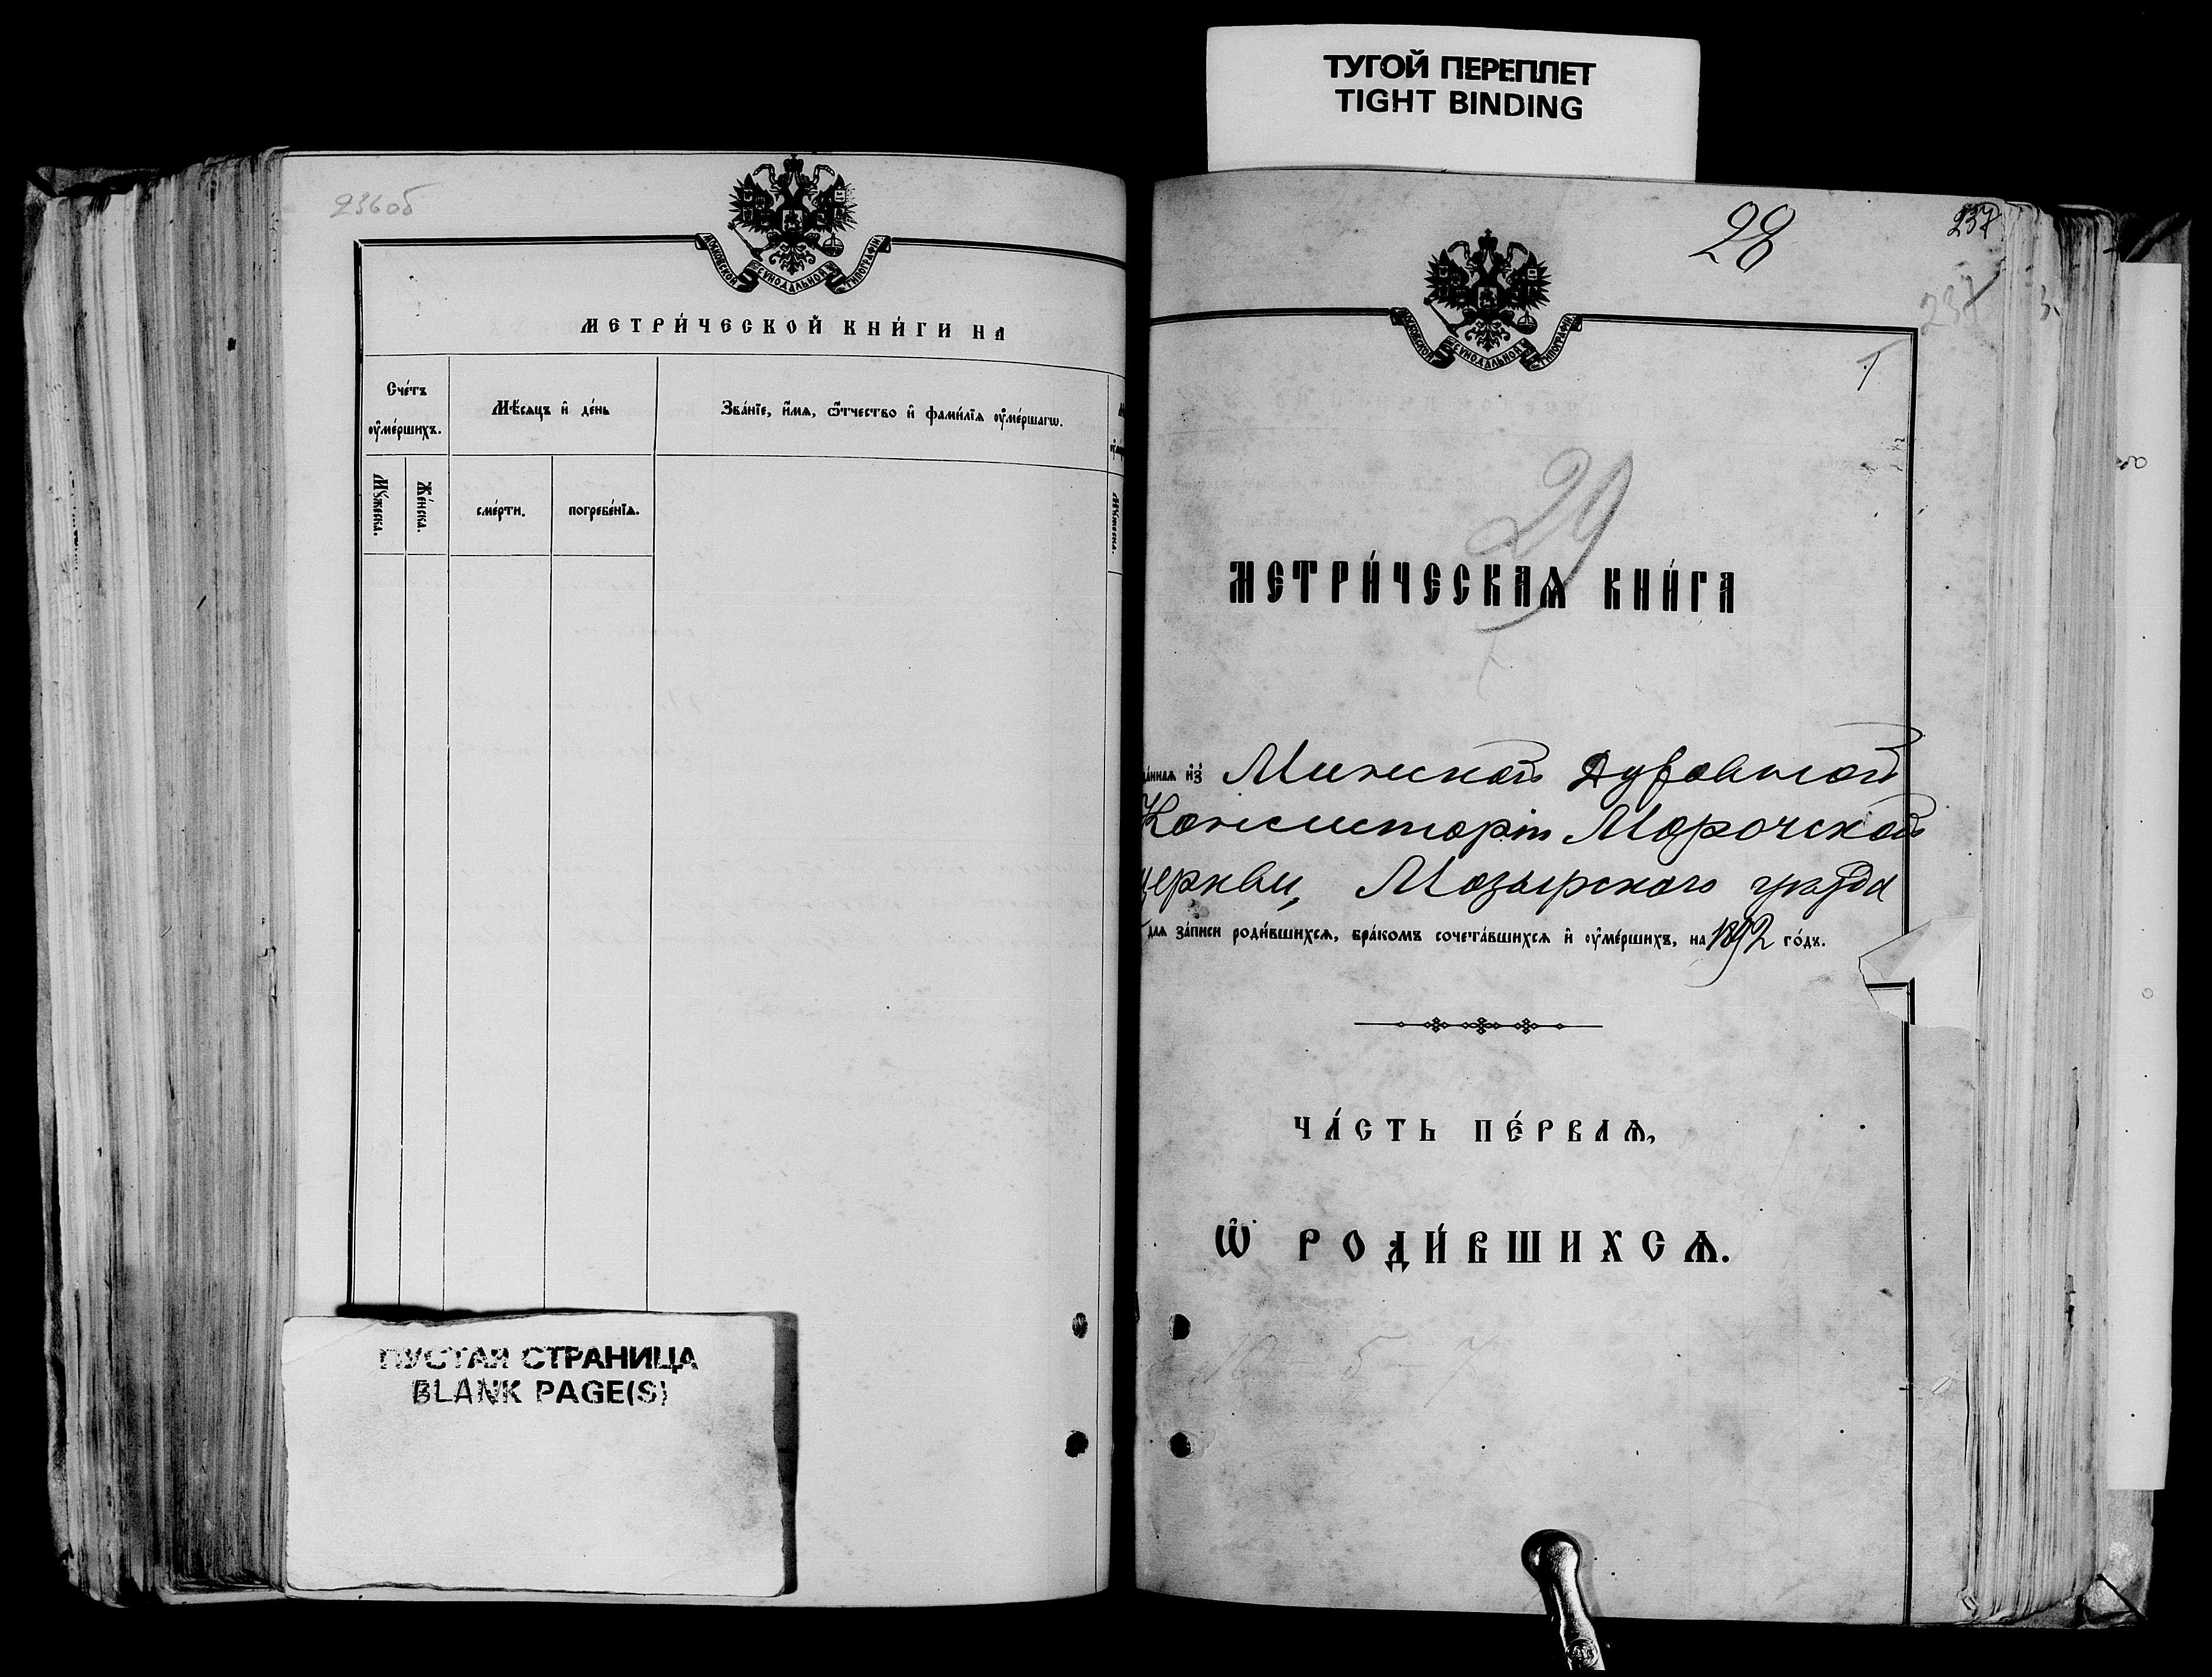 ТУГОЙ ПЕРЕПЛЕТ
TIGHT BINDING
236об
МОСКОВСКОЙ СѴНОДАЛЬНОЙ ТИПОГРАФІИ
МЕТРИ́ЧЕСКОЙ КНИ́ГИ НА
Сче́тъ
ᲂу҆ме́ршихъ.
Мѣ́сяцъ и҆ де́нь
Зва́нїе, и҆́мѧ, ѻ҆́тчество и҆ фамилі́ѧ ᲂу҆ме́ршагѡ.
Мꙋ́жеска.
Же́нска.
сме́рти.
погребе́нїѧ.
ПУСТАЯ СТРАНИЦА
BLANK PAGE(S)
28
237
237
МОСКОВСКОЙ СѴНОДАЛЬНОЙ ТИПОГРАФІИ
1
29
МЕТРИ́ЧЕСКАѦ КНИ́ГА
да́ннаѧ и҆з̾ Минской Духовной
Консисторіи Морочской
церкви, Мозырскаго уѣзда
длѧ за́писи роди́вшихсѧ, бра́комъ сочета́вшихсѧ и҆ ᲂу҆ме́ршихъ, на 1892 го́дъ.
ЧА́СТЬ ПЕ́РВАѦ,
Ѡ҆ РОДИ́ВШИХСѦ.